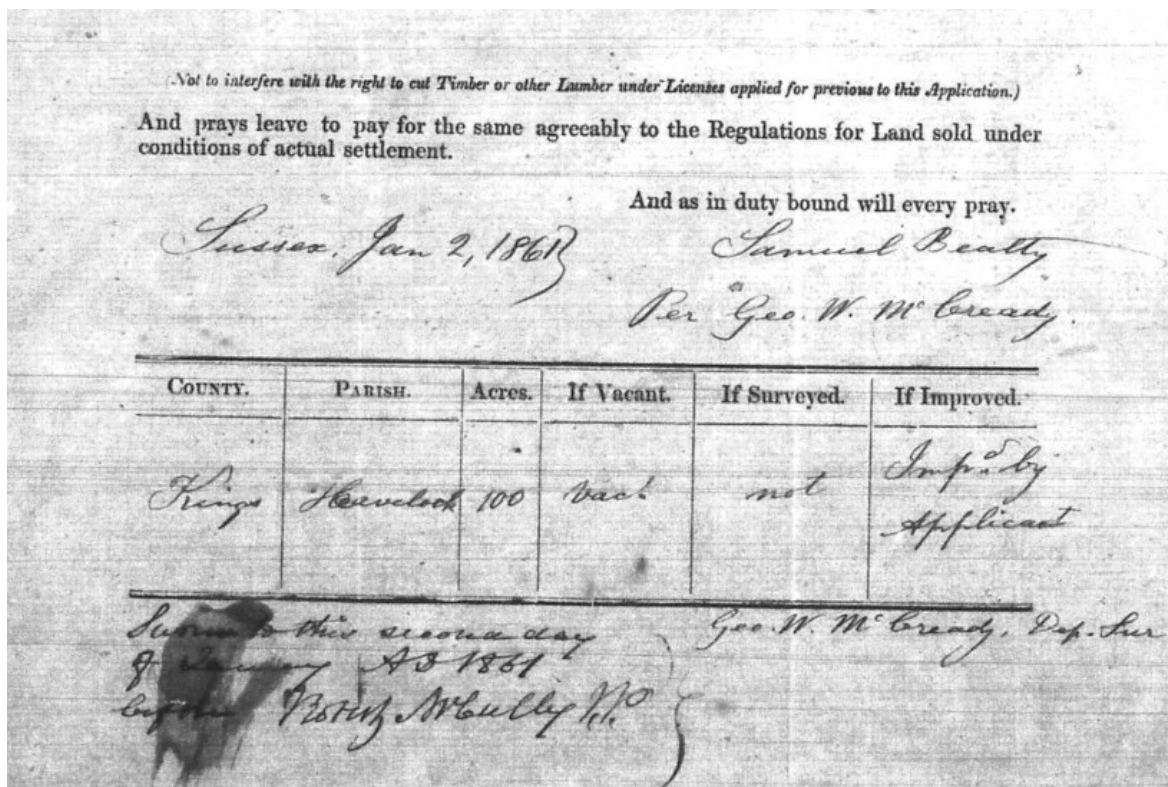 (Not to interfere with the right to cut Timber or other Lumber under Licenses applied for previous to this Application.)
And prays leave to pay for the same agreeably to the Regulations for Land sold under
conditions of actual settlement.
And as in duty bound will every pray.
Sussex, Jan 2, 1861
Samuel Beatty
Per Geo. W. McCready.
COUNTY. PARISH. Acres. If Vacant. If Surveyed. If Improved.
Kings Havelock 100 Vact not Impd. by
Applicant
Sworn to this second day
of January AD 1861
before McCully
Geo. W. McCready, Dep. Sur